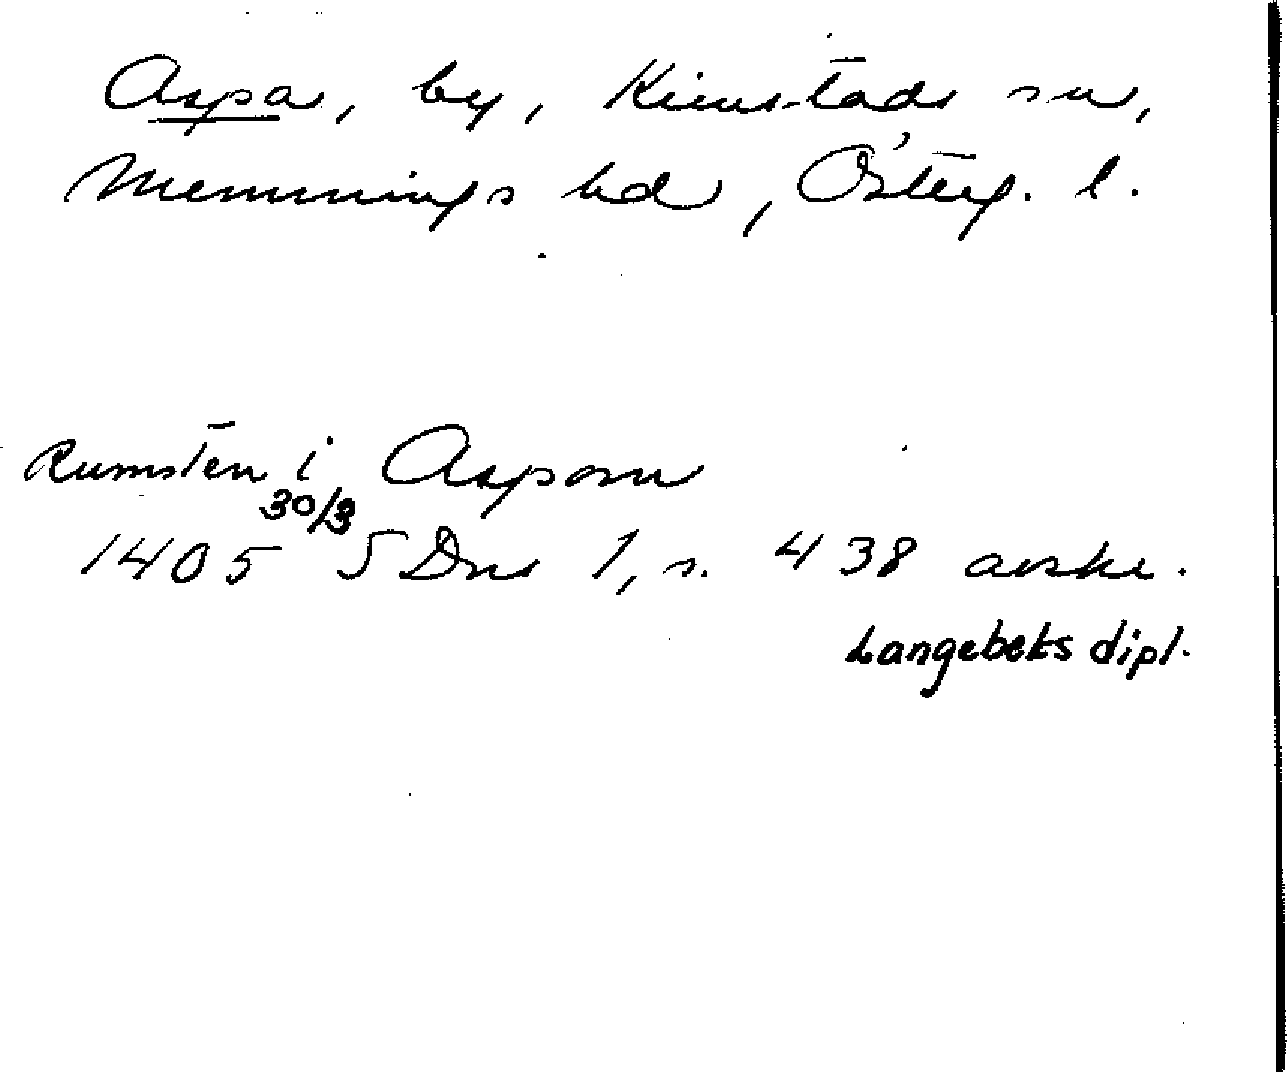 Aspa, by, Kimstads sn,
Memmings hd, Österg. l.
Rumsten i Asposn
30/3
1405 SDns 1, s. 438 avskr.
Langebeks dipl.